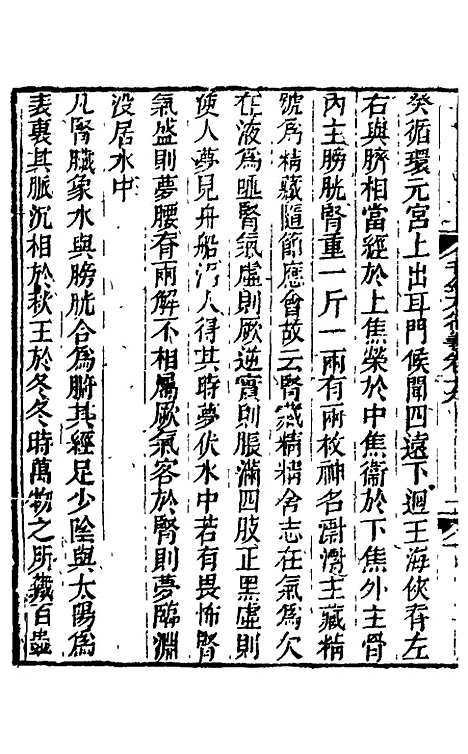 癸循環元宮上出耳門候聞四遠下迴王海俠脊左
右與臍相當經於上焦榮於中焦衞於下焦外主骨
內主膀胱腎重一斤一兩有兩枚神名𣽂𣽂主藏精
號爲精藏隨節應會故云腎藏精精舍志在氣爲欠
在液爲唾腎氣虛則厥逆實則脹滿四肢正黑虛則
使人夢見舟船溺人得其時夢伏水中若有畏怖腎
氣盛則夢腰脊兩解不相屬厥氣客於腎則夢臨淵
沒居水中
凡腎臟象水與膀胱合爲腑其經足少陰與太陽爲
表裏其脈沉相於秋王於冬冬時萬物之所藏百蟲